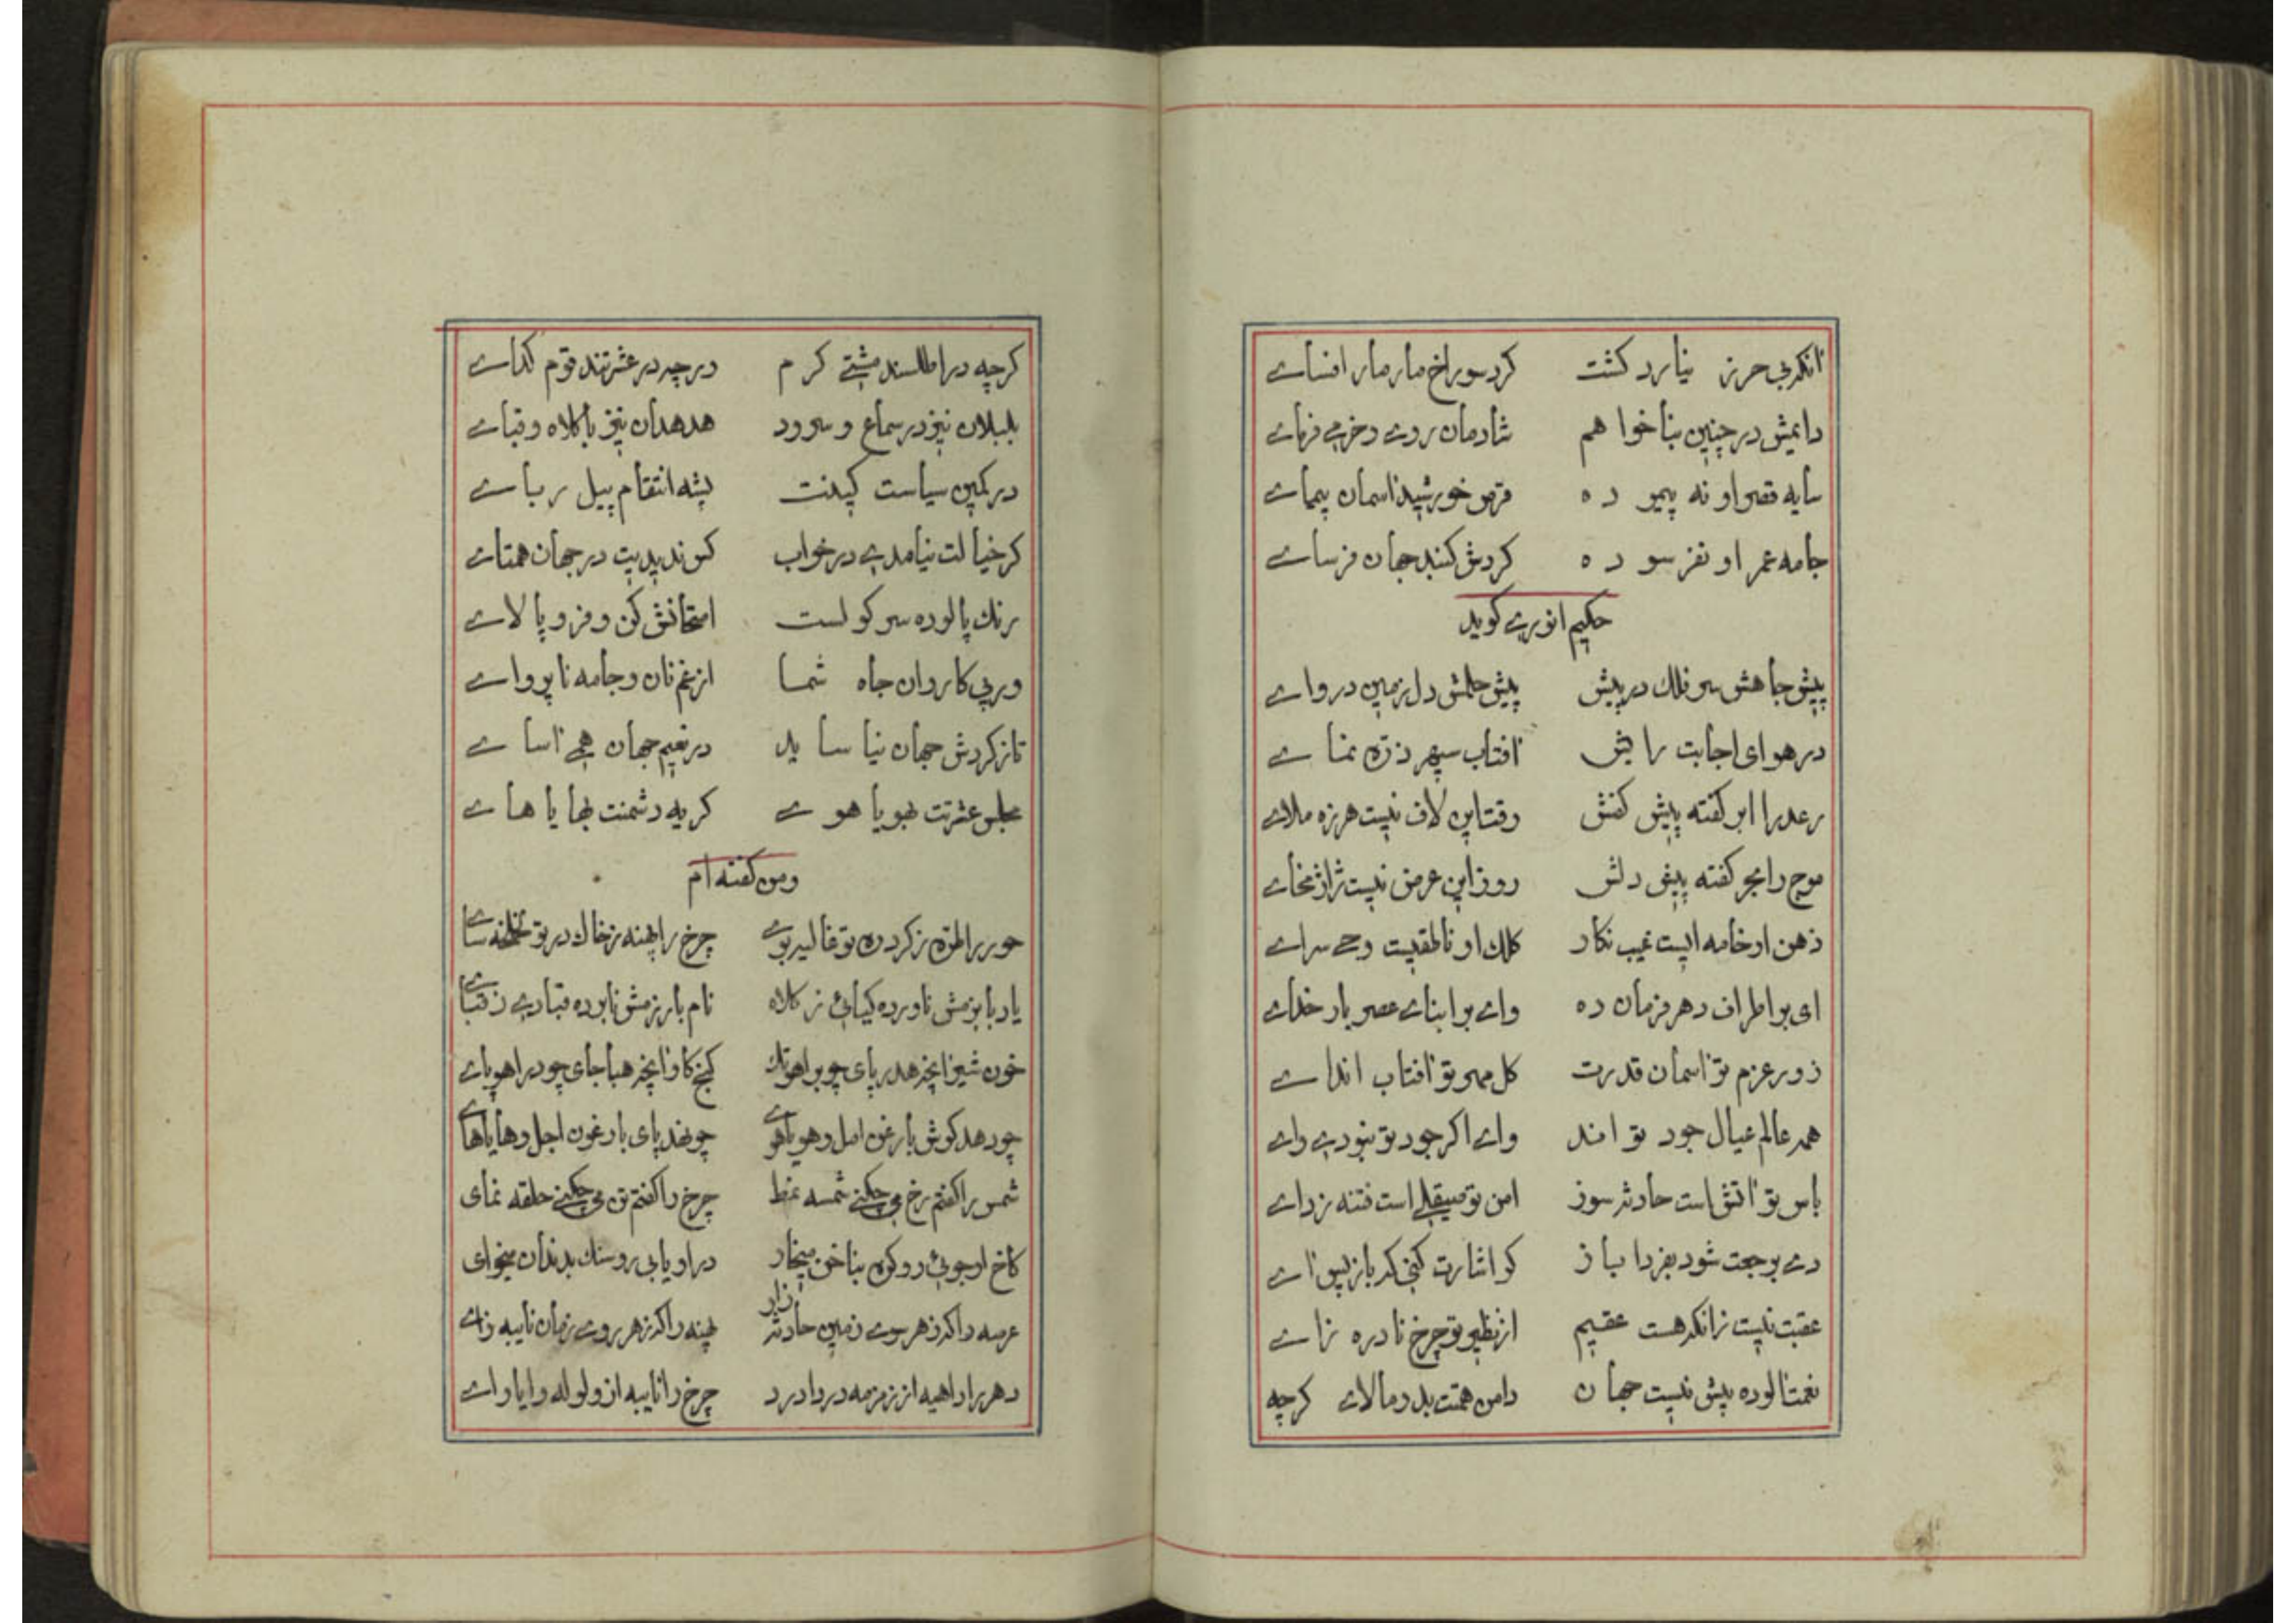 آنکه بی حرز نیارد کشت کرد سوراخ مار مار افسای
دایمش در چنین بنا خواهم شادمان روی و خرمی فزای
سایه قصر او نه پیموده قرص خورشید آسمان پیمای
جامه عمر او نفرسوده کردش کنبد جهان فرسای
حکیم انوری کوید
پیش جاهش سر فلک در پیش پیش حلمش دل زمین دروای
در هوای اجابت رایش آفتاب سپهر ذره نمای
رعد را ابر کفته پیش کفش وقت این لاف نیست هرزه ملای
موج را بحر کفته پیش دلش روز این عرض نیست ژاژ مخای
ذهن او خامه ایست غیب نکار کلک او ناطقیست وحی سرای
ای بر اطراف دهر فرمان ده وای بر ابنای عصر بار خدای
زور عزم تو آسمان قدرت کل مهر تو آفتاب اندای
همه عالم عیال جود تو اند وای اگر جود تو نبودی وای
باس تو آتش است حادثه سوز امن تو صیقلی است فتنه زدای
دی برجعت شود بفردا باز کر اشارت کنی که باز پس آی
عقبت نیست زانکه هست عقیم از نظیر تو چرخ نادره زای
نعمت آلوده پیش نیست جهان دامن همتت بدو مالای کرچه
کرچه در اطلسند مشتی کرم درچه در عشرتند قوم کدای
بلبلان نیز در سماع و سرود هدهدان نیز با کلاه و قبای
در کمین سیاست کینت پشه انتقام پیل ربای
کر خیالت نیامدی در خواب کس ندیدیت در جهان همتای
رنک پالوده سر کو لست امتحانش کن و فرو پالای
ورپی کاروان جاه شما از غم نان و جامه ناپروای
تا ز کردش جهان نیاساید در نعیم جهان همی آسای
مجلس عشرتت بهویاهوی کریه دشمنت بهایاهای
ومن کفته ام
حور را طره ز کرد ره تو غالیه بوی چرخ را پهنه ز خاک در تو لخلخه سای
یاد با بزمش ناورده کیائی ز کلاه نام بار زمش نابوده قبادی ز قبای
خون شیر آنچه هدر پای چو بر آهو تک کنج کاو آنچه هبا جای چو در آهو پای
چو دهد کوش بارغن امل و هویاهوی چو نهد پای بارغون اجل و هایاهای
شمس را کفتم رخ می چکنی شمسه نمط چرخ را کفتم تن می چکنی حلقه نمای
کاخ او جوئی رو کره بناخن میخار در او یابی رو سنک بدندان میخای
عرصه را که ز هر سوی زمین حادثه زار پهنه را که ز هر روی زمان نایبه زای
دهر را داهیه از زمزمه دردادرد چرخ را نایبه از ولوله وایاوای